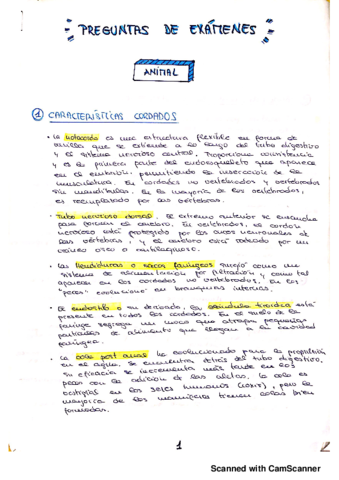 PREGUNTAS DE EXÁMENES
ANIMAL
1 CARACTERÍSTICAS CORDADOS
• La notocorda es una estructura flexible en forma de
varilla que se extiende a lo largo del tubo digestivo
y el sistema nervioso central. Proporciona consistencia
y es la primera parte del endoesqueleto que aparece
en el embrión, permitiendo la inserción de la
musculatura. En cordados no vertebrados y vertebrados
sin mandíbulas. En la mayoría de los vertebrados,
es reemplazado por las vértebras.
• Tubo nervioso dorsal. El extremo anterior se ensancha
para formar el cerebro. En vertebrados, el cordón
nervioso está protegido por los arcos neuronales de
las vértebras, y el cerebro está rodeado por un
cráneo óseo o cartilaginoso.
• Las hendiduras o sacos faríngeos surgió como un
sistema de alimentación por filtración y como tal
aparecen en los cordados no vertebrados. En los
"peces" evolucionó en branquias internas.
• El endostilo o su derivado, la glándula tiroidea está
presente en todos los cordados. En el suelo de la
faringe segrega un moco que atrapa pequeñas
partículas de alimento que llegan a la cavidad
faríngea.
• La cola post anal ha evolucionado para la propulsión
en el agua. Se encuentra detrás del tubo digestivo.
Su eficacia se incrementa más tarde en los
peces con la adición de las aletas. La cola es
vestigial en los seres humanos (coxis), pero la
mayoría de los mamíferos tienen colas bien
formadas.
1
Scanned with CamScanner